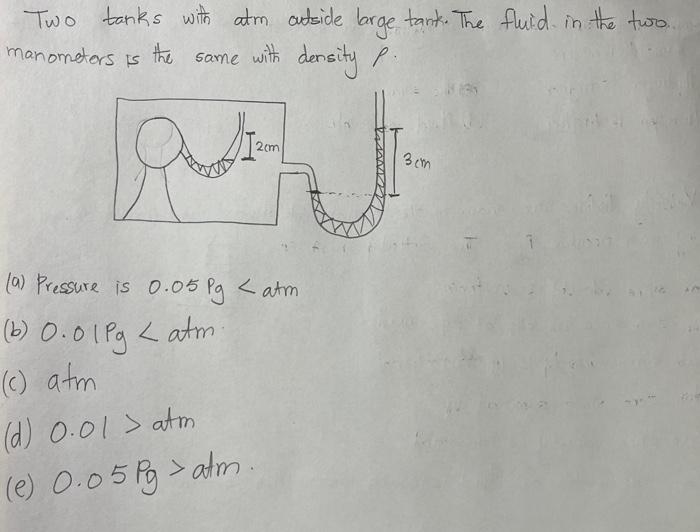 Two tanks with atm outside large tank. The fluid in the two
manometers is the same with density ρ.
2cm
3cm
(a) Pressure is 0.05 ρg < atm
(b) 0.01ρg < atm
(c) atm
(d) 0.01 > atm
(e) 0.05 ρg > atm.